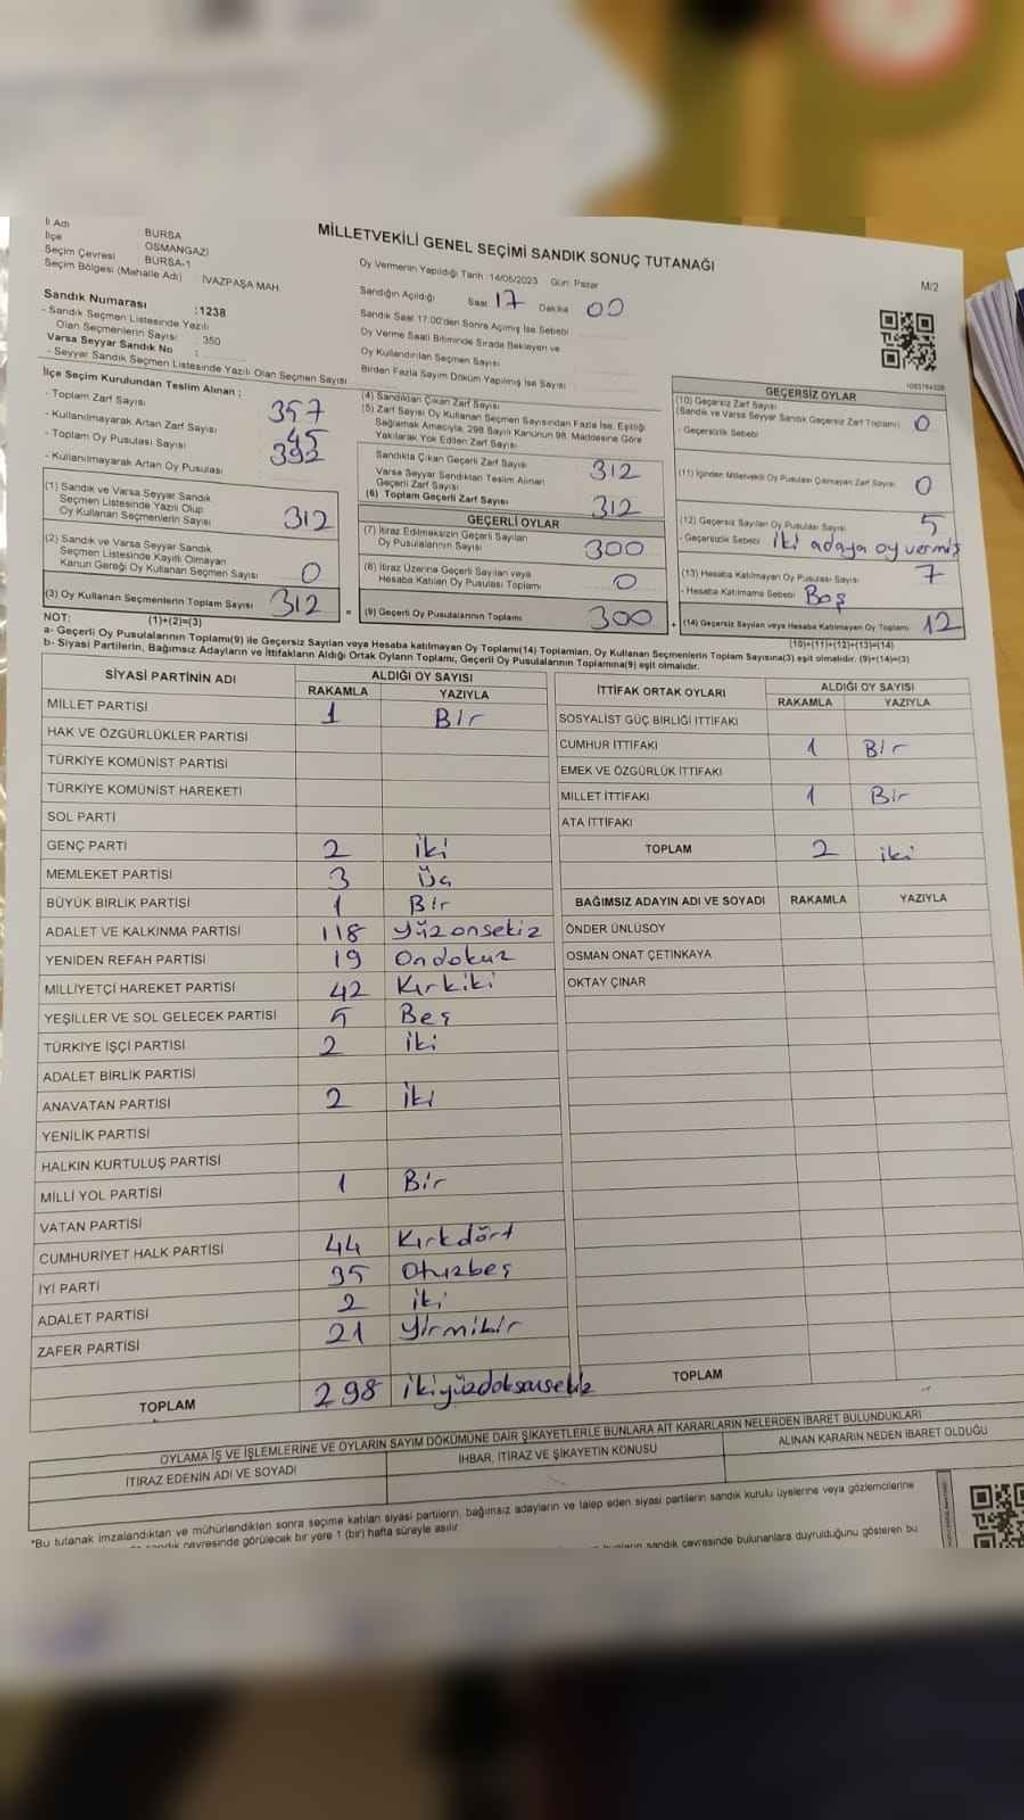 İl Adı BURSA
İlçe OSMANGAZİ
Seçim Çevresi BURSA-1
Seçim Bölgesi (Mahalle Adı) İVAZPAŞA MAH.
Sandık Numarası :1238
- Sandık Seçmen Listesinde Yazılı
Olan Seçmenlerin Sayısı 350
Varsa Seyyar Sandık No :
- Seyyar Sandık Seçmen Listesinde Yazılı Olan Seçmen Sayısı
MİLLETVEKİLİ GENEL SEÇİMİ SANDIK SONUÇ TUTANAĞI
M/2
Oy Vermenin Yapıldığı Tarih :14/05/2023 Gün: Pazar
Sandığın Açıldığı Saat 17 Dakika 00
Sandık Saat 17:00'den Sonra Açılmış İse Sebebi
Oy Verme Saati Bitiminde Sırada Bekleyen ve
Oy Kullandırılan Seçmen Sayısı
Birden Fazla Sayım Döküm Yapılmış İse Sayısı
İlçe Seçim Kurulundan Teslim Alınan ;
- Toplam Zarf Sayısı 357
- Kullanılmayarak Artan Zarf Sayısı 45
- Toplam Oy Pusulası Sayısı 392
- Kullanılmayarak Artan Oy Pusulası
(1) Sandık ve Varsa Seyyar Sandık
Seçmen Listesinde Yazılı Olup
Oy Kullanan Seçmenlerin Sayısı 312
(2) Sandık ve Varsa Seyyar Sandık
Seçmen Listesinde Kayıtlı Olmayan
Kanun Gereği Oy Kullanan Seçmen Sayısı 0
(3) Oy Kullanan Seçmenlerin Toplam Sayısı 312
(1)+(2)=(3)
(4) Sandıktan Çıkan Zarf Sayısı
(5) Zarf Sayısı Oy Kullanan Seçmen Sayısından Fazla İse, Eşitliği
Sağlamak Amacıyla, 298 Sayılı Kanunun 98. Maddesine Göre
Yakılarak Yok Edilen Zarf Sayısı
Sandıkta Çıkan Geçerli Zarf Sayısı 312
Varsa Seyyar Sandıktan Teslim Alınan
Geçerli Zarf Sayısı
(6) Toplam Geçerli Zarf Sayısı 312
GEÇERLİ OYLAR
(7) İtiraz Edilmeksizin Geçerli Sayılan
Oy Pusulalarının Sayısı 300
(8) İtiraz Üzerine Geçerli Sayılan veya
Hesaba Katılan Oy Pusulası Toplamı 0
(9) Geçerli Oy Pusulalarının Toplamı 300
GEÇERSİZ OYLAR
(10) Geçersiz Zarf Sayısı
(Sandık ve Varsa Seyyar Sandık Geçersiz Zarf Toplamı) 0
- Geçersizlik Sebebi
(11) İçinden Milletvekili Oy Pusulası Çıkmayan Zarf Sayısı 0
(12) Geçersiz Sayılan Oy Pusulası Sayısı 5
- Geçersizlik Sebebi iki adaya oy vermiş
(13) Hesaba Katılmayan Oy Pusulası Sayısı 7
- Hesaba Katılmama Sebebi Boş
(14) Geçersiz Sayılan veya Hesaba Katılmayan Oy Toplamı 12
(10)+(11)+(12)+(13)=(14)
NOT:
a- Geçerli Oy Pusulalarının Toplamı(9) ile Geçersiz Sayılan veya Hesaba katılmayan Oy Toplamı(14) Toplamları, Oy Kullanan Seçmenlerin Toplam Sayısına(3) eşit olmalıdır. (9)+(14)=(3)
b- Siyasi Partilerin, Bağımsız Adayların ve İttifakların Aldığı Ortak Oyların Toplamı, Geçerli Oy Pusulalarının Toplamına(9) eşit olmalıdır.
SİYASİ PARTİNİN ADI ALDIĞI OY SAYISI
RAKAMLA YAZIYLA
MİLLET PARTİSİ 1 Bir
HAK VE ÖZGÜRLÜKLER PARTİSİ
TÜRKİYE KOMÜNİST PARTİSİ
TÜRKİYE KOMÜNİST HAREKETİ
SOL PARTİ
GENÇ PARTİ 2 iki
MEMLEKET PARTİSİ 3 Üç
BÜYÜK BİRLİK PARTİSİ 1 Bir
ADALET VE KALKINMA PARTİSİ 118 Yüzonsekiz
YENİDEN REFAH PARTİSİ 19 Ondokuz
MİLLİYETÇİ HAREKET PARTİSİ 42 Kırkiki
YEŞİLLER VE SOL GELECEK PARTİSİ 5 Beş
TÜRKİYE İŞÇİ PARTİSİ 2 iki
ADALET BİRLİK PARTİSİ
ANAVATAN PARTİSİ 2 iki
YENİLİK PARTİSİ
HALKIN KURTULUŞ PARTİSİ
MİLLİ YOL PARTİSİ 1 Bir
VATAN PARTİSİ
CUMHURİYET HALK PARTİSİ 44 Kırkdört
İYİ PARTİ 35 Otuzbeş
ADALET PARTİSİ 2 iki
ZAFER PARTİSİ 21 Yirmibir
TOPLAM 298 ikiyüzdoksansekiz
İTTİFAK ORTAK OYLARI ALDIĞI OY SAYISI
RAKAMLA YAZIYLA
SOSYALİST GÜÇ BİRLİĞİ İTTİFAKI
CUMHUR İTTİFAKI 1 Bir
EMEK VE ÖZGÜRLÜK İTTİFAKI
MİLLET İTTİFAKI 1 Bir
ATA İTTİFAKI
TOPLAM 2 iki
BAĞIMSIZ ADAYIN ADI VE SOYADI RAKAMLA YAZIYLA
ÖNDER ÜNLÜSOY
OSMAN ONAT ÇETİNKAYA
OKTAY ÇINAR
TOPLAM
OYLAMA İŞ VE İŞLEMLERİNE VE OYLARIN SAYIM DÖKÜMÜNE DAİR ŞİKAYETLERLE BUNLARA AİT KARARLARIN NELERDEN İBARET BULUNDUKLARI
İTİRAZ EDENİN ADI VE SOYADI İHBAR, İTİRAZ VE ŞİKAYETİN KONUSU ALINAN KARARIN NEDEN İBARET OLDUĞU
*Bu tutanak imzalandıktan ve mühürlendikten sonra seçime katılan siyasi partilerin, bağımsız adayların ve talep eden siyasi partilerin sandık kurulu üyelerine veya gözlemcilerine
sandık çevresinde görülecek bir yere 1 (bir) hafta süreyle asılır.
sandık çevresinde bulunanlara duyrulduğunu gösteren bu